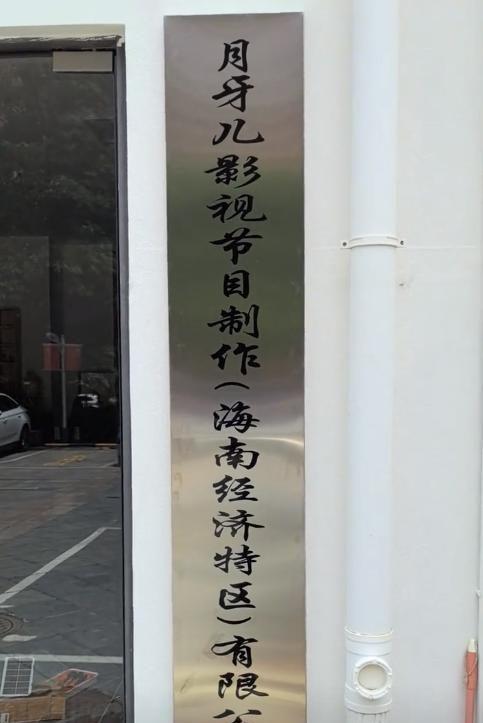 月牙儿影视节目制作(海南经济特区)有限公